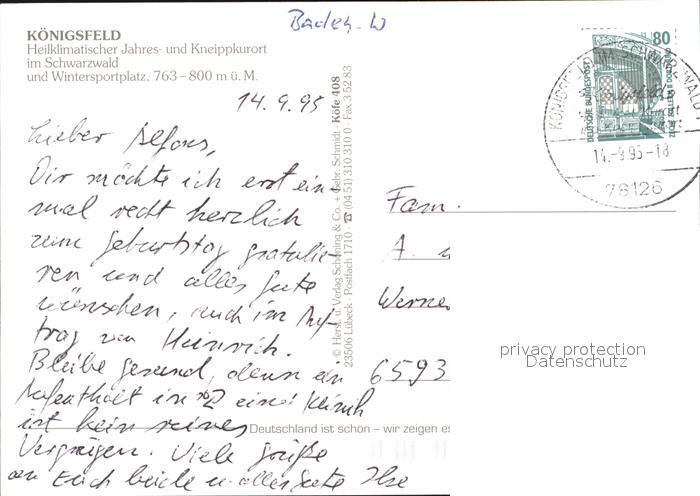 Baden-W
KÖNIGSFELD
Heilklimatischer Jahres- und Kneippkurort
im Schwarzwald
und Wintersportplatz, 763–800 m ü. M.
14.9.95
Lieber Alfons,
Dir möchte ich erst ein
mal recht herzlich
zum Geburtstag gratulie-
ren und alles Gute
wünschen, auch im Auf-
trag von Heinrich.
Bleibe gesund, denn ein
Aufenthalt in einer Klinik
ist kein reines
Vergnügen. Viele Grüße
an Euch beide u. alles Gute Ilse
© Herst. u. Verlag Schöning & Co. + Gebr. Schmidt · Köfe 408
23506 Lübeck · Postfach 1710 · ☎ (04 51) 310 310 0 · Fax 3 52 83
Deutschland ist schön – wir zeigen es
80
DEUTSCHE BUNDESPOST
14.-9.95-18
78126
Fam.
A. u
Werne
6593
privacy protection
Datenschutz